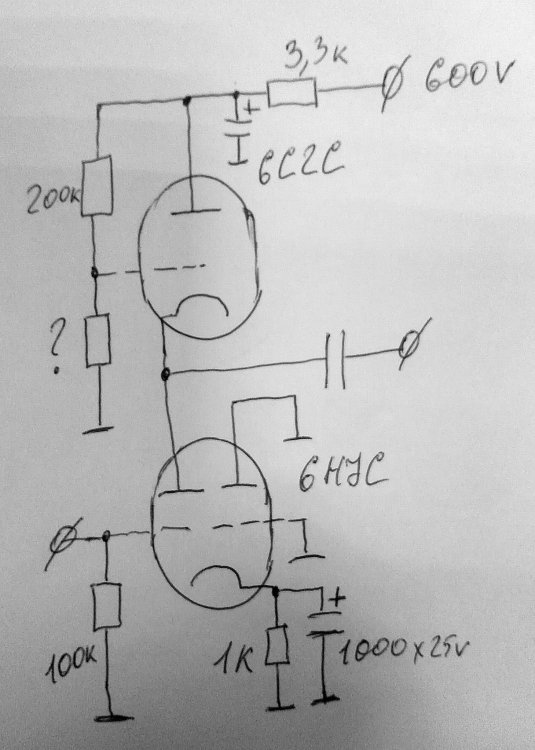 3,3к
600V
+
6С2С
200к
?
6Н7С
+
100к
1К
1000x25v